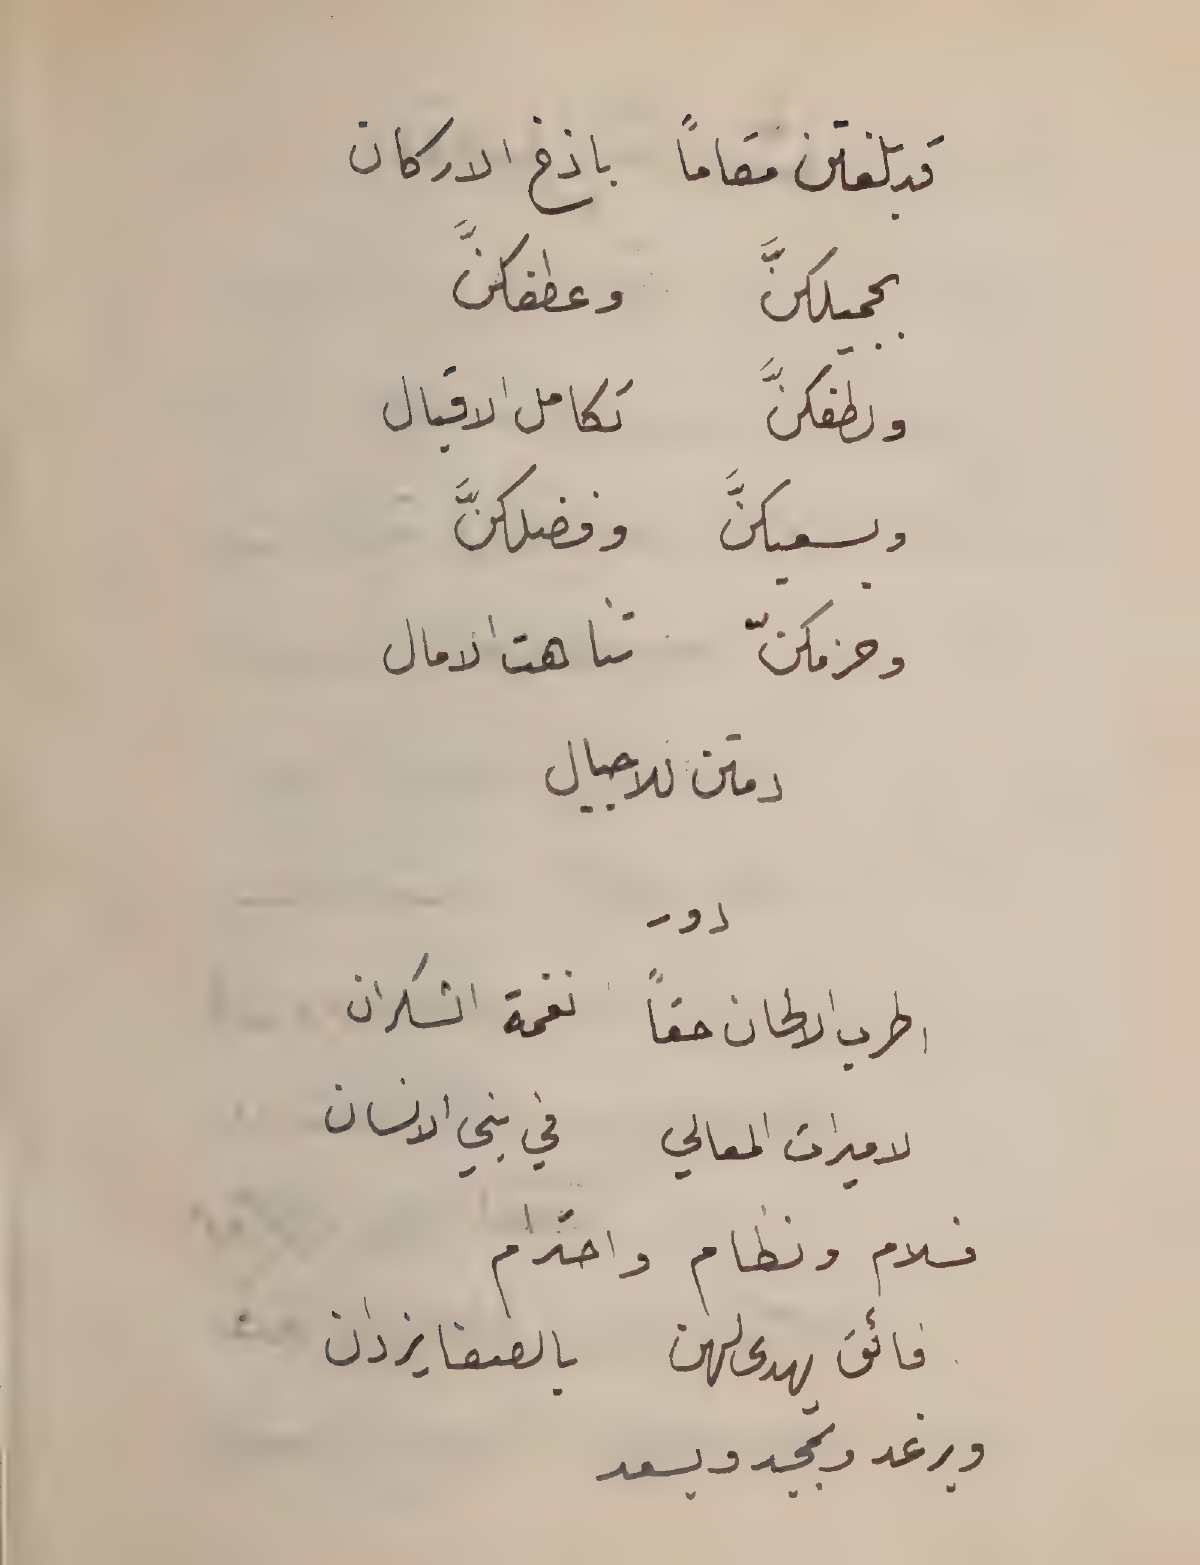 قد بلغتن مقاماً باذخ الاركان
بجميلكنَّ وعطفكنَّ
ولطفكنَّ تكامل الاقبال
وبسعيكنَّ وفضلكنَّ
وحزمكنّ تناهت الامال
دمتن للاجيال
دور
اطرب الالحان حقاً نغمة الشكران
لاميرات المعالي في بني الانسان
فسلام ونظام واحترام
فائق يهدى لهن بالصفا يزدان
وبرغد وبمجد ويسعد